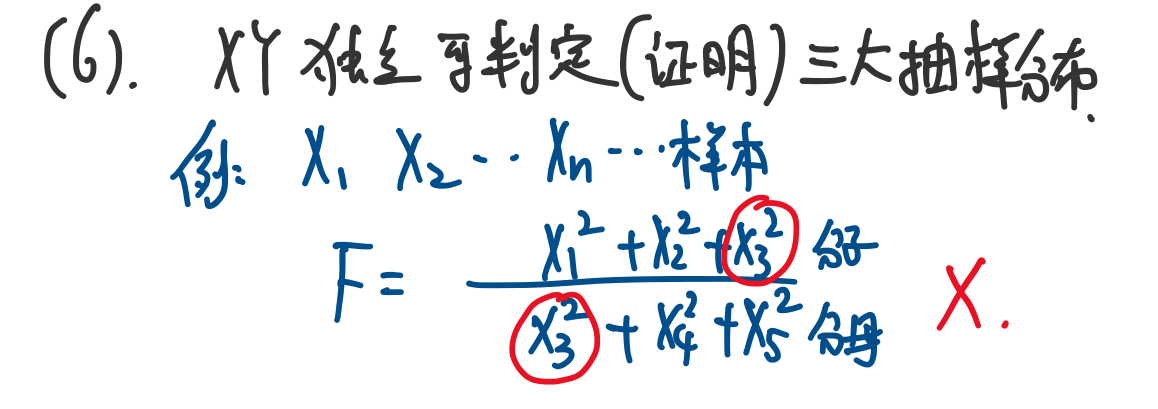 (6). XY 独立 可判定(证明)三大抽样分布.
例: X₁ X₂ ... Xn ... 样本
F = (X₁² + X₂² + X₃²) / (X₃² + X₄² + X₅²) 分子 分母 X.